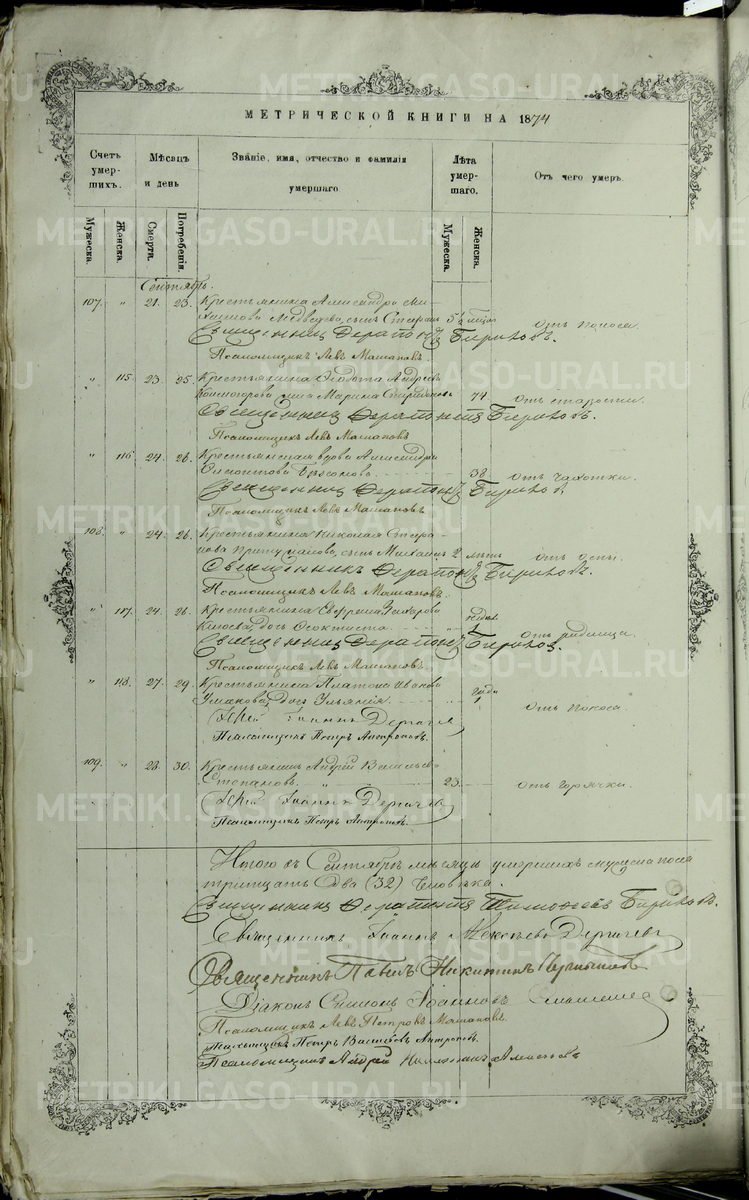 МЕТРИЧЕСКОЙ КНИГИ НА 1874
Счетъ умерших. Мѣсяцъ и день Званіе, имя, отчество и фамилія умершаго Лѣта умершаго. Отъ чего умеръ.
Мужеска. Женска. Смерта. Погребенія. Мужеска. Женска.
Сентябрь.
107. " 21. 23. Крестьянина Александра Ми-
хаилова Медведева, сынъ 5½ мѣсяц. отъ поноса.
Священникъ Ферапонтъ Бирюковъ.
Псаломщикъ Левъ Машановъ.
" 115 23. 25. Крестьянина Ѳедота Андреева
жена Марина 74. отъ старости.
Священникъ Ферапонтъ Бирюковъ.
Псаломщикъ Левъ Машановъ
" 116 24. 26. Крестьянская вдова Александра
38. отъ чахотки.
Священникъ Ферапонтъ Бирюков.
Псаломщикъ Левъ Машановъ.
108. " 24. 26. Крестьянина Николая Степа-
нова сынъ Михаилъ 2 лѣтъ отъ оспы.
Священникъ Ферапонтъ Бирюковъ.
Псаломщикъ Левъ Машановъ.
" 117. 24. 26. Крестьянина Ефрема Захарова
дочь Феоктиста недѣл. 1 отъ родимца.
Священникъ Ферапонтъ Бирюков.
Псаломщикъ Левъ Машановъ.
" 118. 27. 29. Крестьянина Платона Иванова
Ушакова дочь Ульянія года 1 отъ поноса.
Іерей Іоаннъ Дергачев
Псаломщикъ Петръ Антроповъ.
109. " 28. 30. Крестьянинъ Андрей Васильевъ
Степановъ. 23. отъ горячки.
Іерей Іоаннъ Дергачев
Псаломщикъ Петръ Антропов.
Итого въ Сентябрѣ мѣсяцѣ умершихъ мужеска пола
тритцать два (32) человѣка.
Священникъ Ферапонтъ Тимофеевъ Бирюковъ.
Священникъ Іоаннъ Алексѣевъ Дергачевъ
Священникъ Павелъ Никитинъ
Діаконъ Симеонъ Іоанновъ
Псаломщикъ Левъ Петровъ Машановъ.
Псаломщикъ Петръ Васильевъ Антропов.
Псаломщикъ Андрей
METRIKI.GASO-URAL.RU